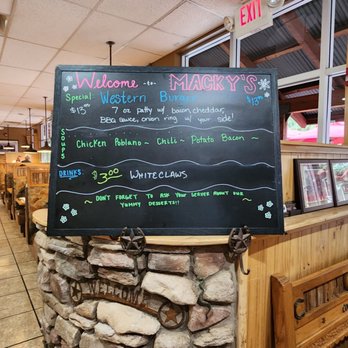 EXIT
Welcome -to- MACKY'S
Special: Western Burger $13.99
$13.99 7 oz patty w/ bacon, cheddar,
BBQ sauce, onion ring w/ your side!
SOUPS Chicken Poblano ~ Chili ~ Potato Bacon ~
DRINKS $3.00 WHITECLAWS
~ DON'T FORGET TO ASK YOUR SERVER ABOUT OUR
YUMMY DESSERTS!!
WELCOME